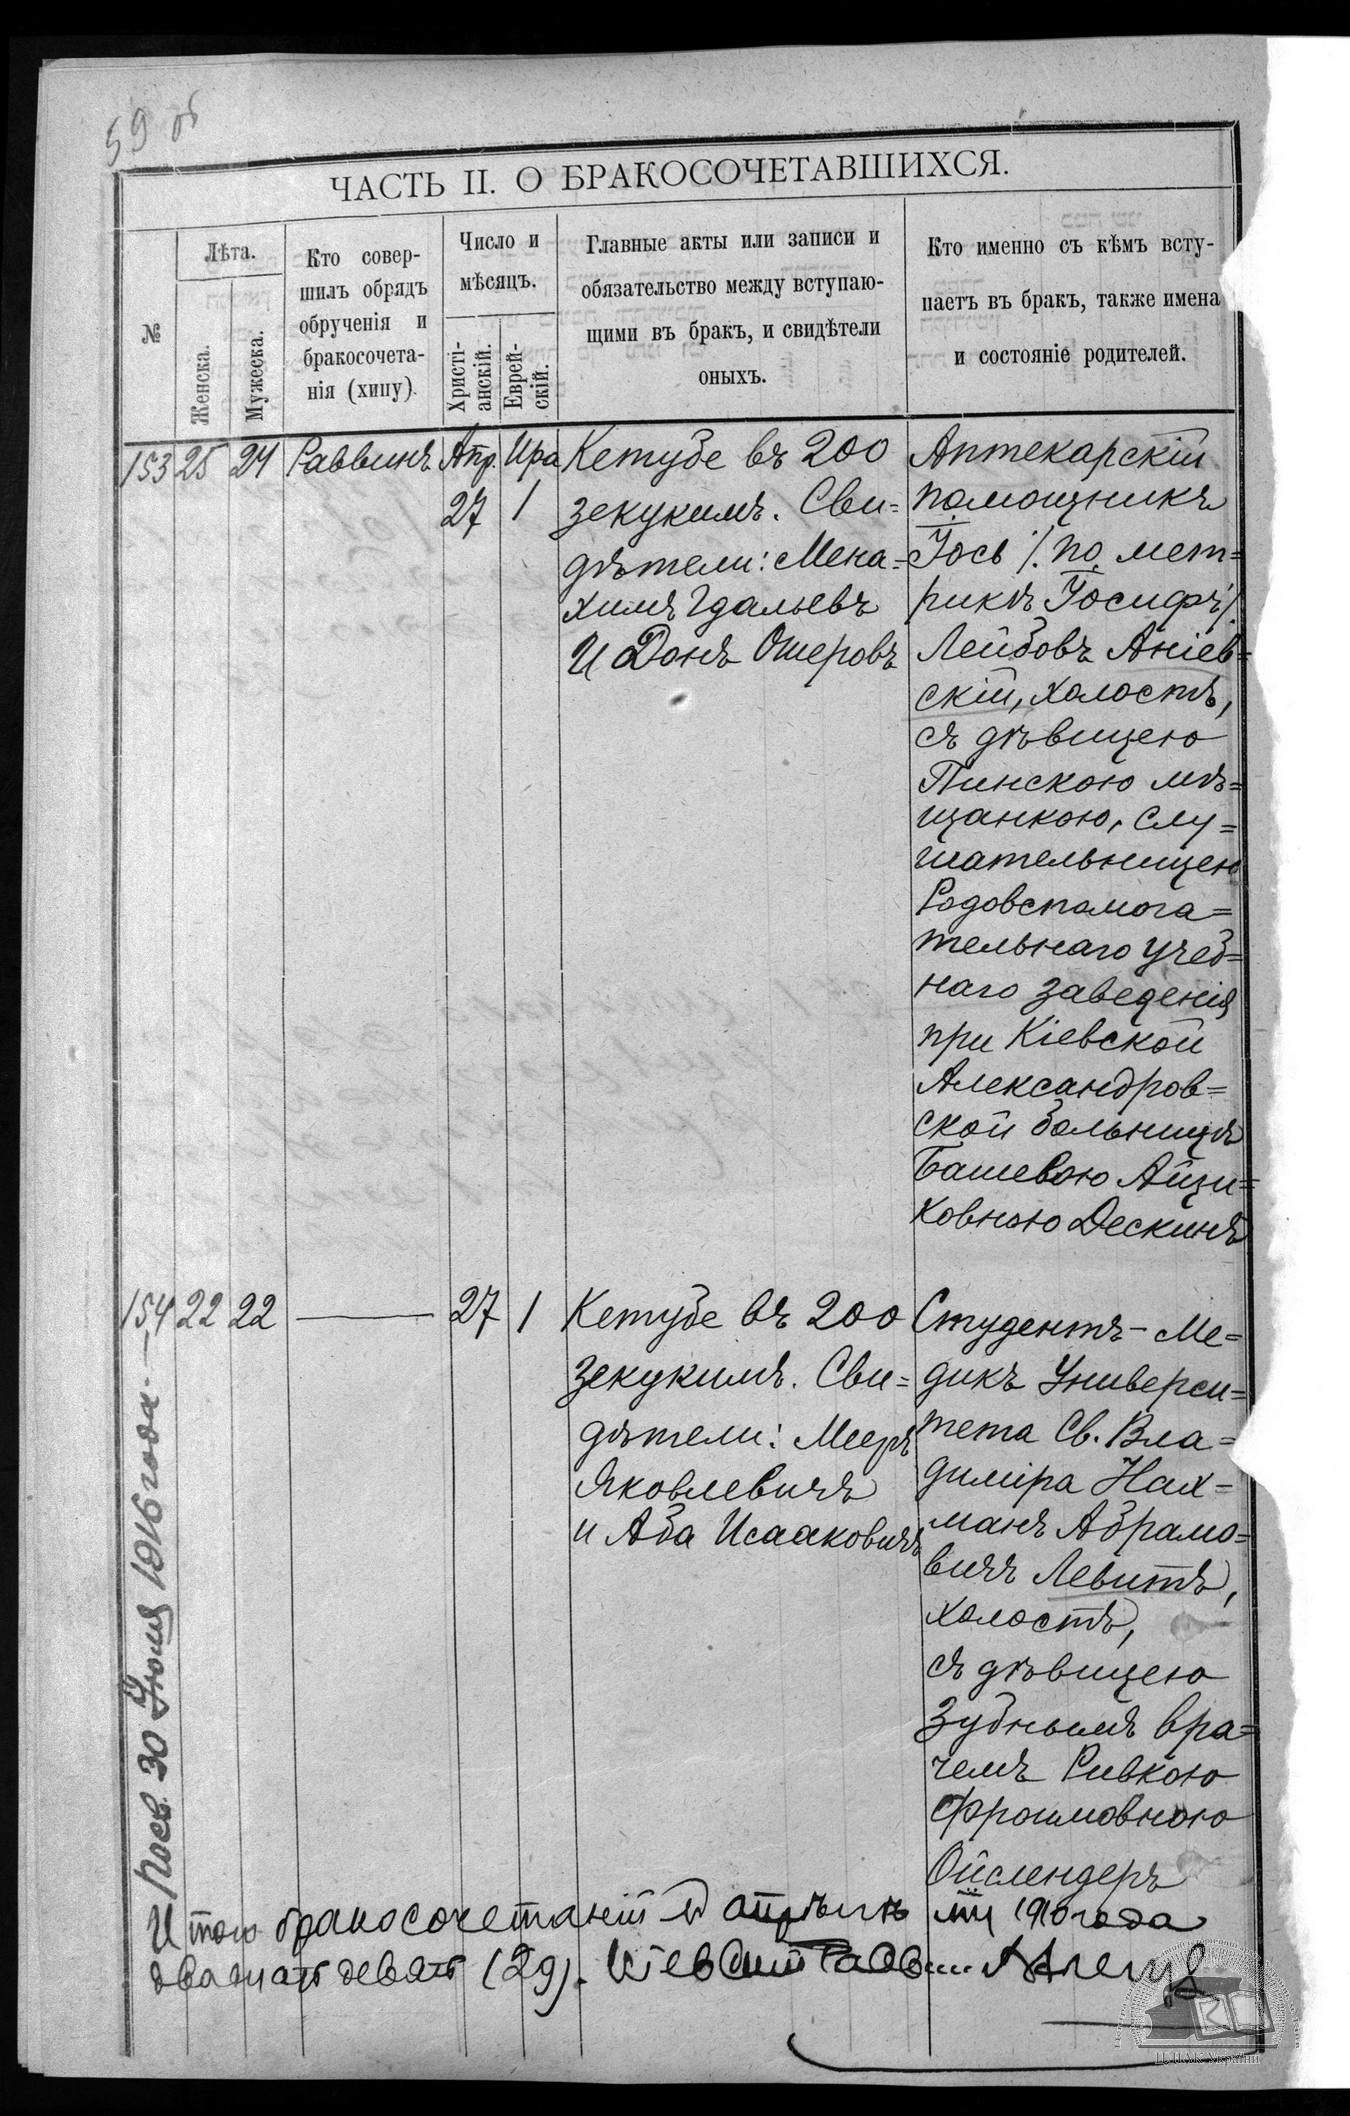 59 об
ЧАСТЬ II. О БРАКОСОЧЕТАВШИХСЯ.
№
Лѣта.
Женска.
Мужеска.
Кто совер-
шилъ обрядъ
обрученія и
бракосочета-
нія (хипу).
Число и
мѣсяцъ.
Христі-
анскій.
Еврей-
скій.
Главные акты или записи и
обязательство между вступаю-
щими въ бракъ, и свидѣтели
оныхъ.
Кто именно съ кѣмъ всту-
паетъ въ бракъ, также имена
и состояніе родителей.
153 25 24 Раввинъ Апр. Ира
27 1
Кетубе въ 200
зекукимъ. Сви=
дѣтели: Мена=
химъ Гдальевъ
и Донъ Ошеровъ
Аптекарскій
помощникъ
Іось /. по мет=
рикѣ Іосифъ/.
Лейбовъ Аніев=
скій, холостъ,
съ дѣвицею
Пинскою мѣ=
щанкою, слу=
шательницею
Родовспомога=
тельнаго учеб=
наго заведенія
при Кіевской
Александров=
ской больницѣ
Башевою Айзи=
ковною Дескинъ
154 22 22 — 27 1
Кетубе въ 200
зекукимъ. Сви=
дѣтели: Мееръ
Яковлевичъ
и Аба Исааковичъ
Студентъ-Ме=
дикъ Универси=
тета Св. Вла=
диміра Нах=
манъ Абрамо=
вичъ Левитъ,
холостъ,
съ дѣвицею
Зубнымъ вра=
чемъ Ривкою
Фроимовною
Ойслендеръ
30 Іюля 1916 года.
Итого бракосочетаній въ апрѣлѣ 1916 года
двадцать девять (29). Кіевскій Равв....
ЦДІАК України